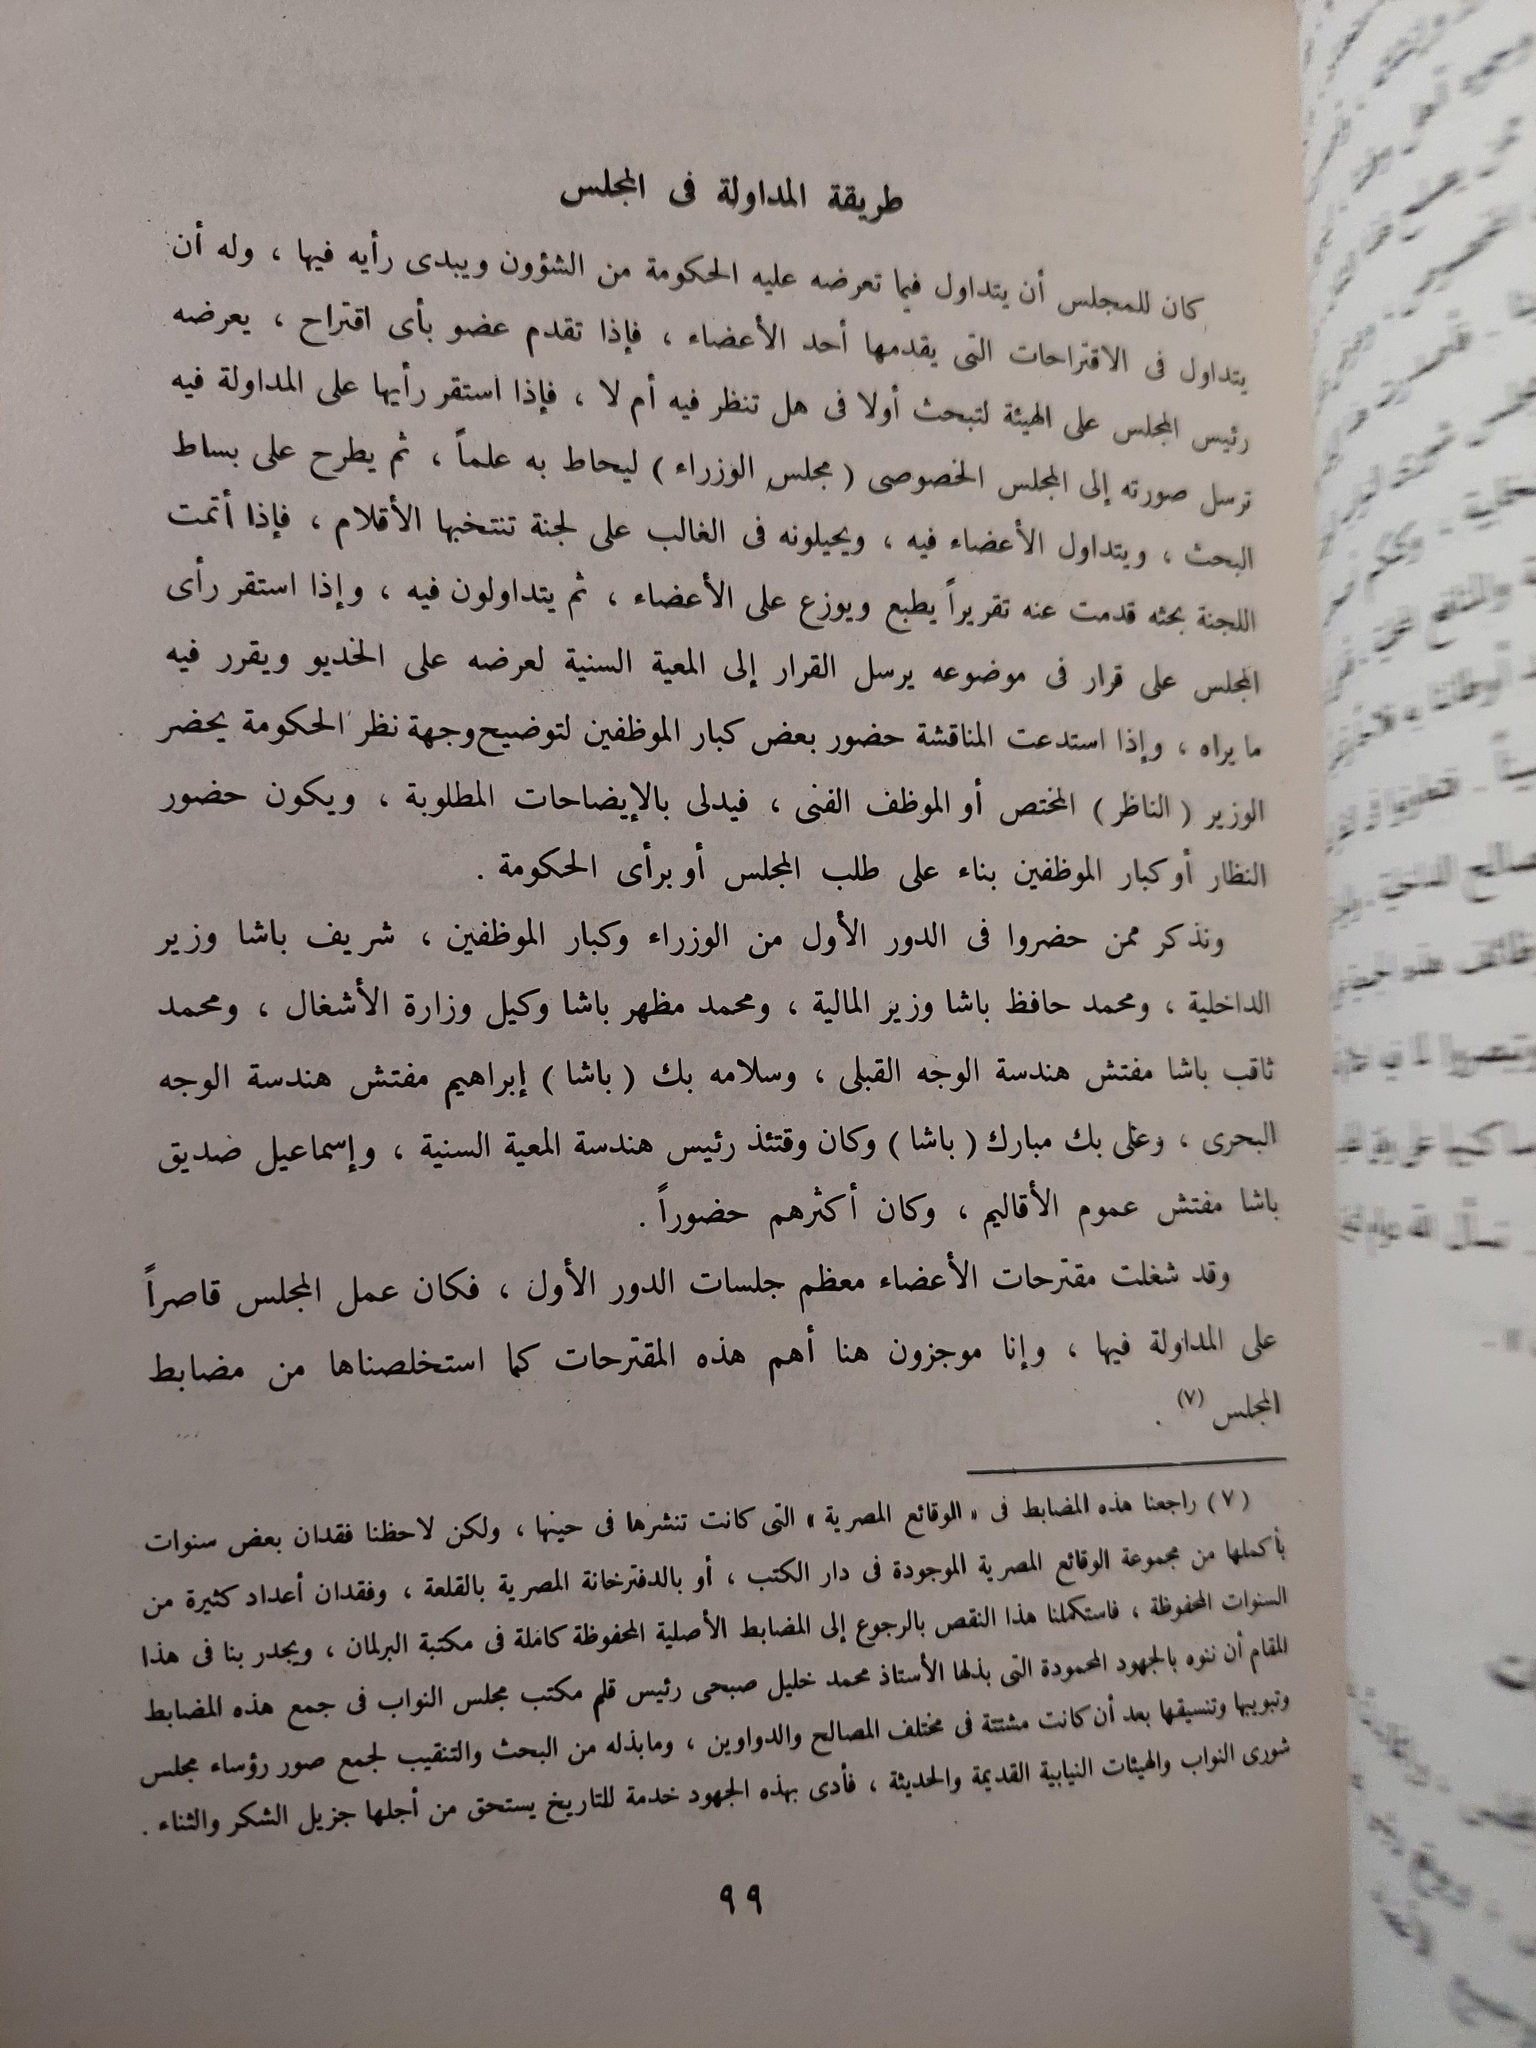 طريقة المداولة فى المجلس
كان للمجلس أن يتداول فيما تعرضه عليه الحكومة من الشؤون ويبدى رأيه فيها ، وله أن
يتداول فى الاقتراحات التى يقدمها أحد الأعضاء ، فإذا تقدم عضو بأى اقتراح ، يعرضه
رئيس المجلس على الهيئة لتبحث أولا فى هل تنظر فيه أم لا ، فإذا استقر رأيها على المداولة فيه
ترسل صورته إلى المجلس الخصوصى ( مجلس الوزراء ) ليحاط به علماً ، ثم يطرح على بساط
البحث ، ويتداول الأعضاء فيه ، ويحيلونه فى الغالب على لجنة تنتخبها الأقلام ، فإذا أتمت
اللجنة بحثه قدمت عنه تقريراً يطبع ويوزع على الأعضاء ، ثم يتداولون فيه ، وإذا استقر رأى
المجلس على قرار فى موضوعه يرسل القرار إلى المعية السنية لعرضه على الخديو ويقرر فيه
ما يراه ، وإذا استدعت المناقشة حضور بعض كبار الموظفين لتوضيح وجهة نظر الحكومة يحضر
الوزير ( الناظر ) المختص أو الموظف الفنى ، فيدلى بالإيضاحات المطلوبة ، ويكون حضور
النظار أو كبار الموظفين بناء على طلب المجلس أو برأى الحكومة .
ونذكر ممن حضروا فى الدور الأول من الوزراء وكبار الموظفين ، شريف باشا وزير
الداخلية ، ومحمد حافظ باشا وزير المالية ، ومحمد مظهر باشا وكيل وزارة الأشغال ، ومحمد
ثاقب باشا مفتش هندسة الوجه القبلى ، وسلامه بك ( باشا ) إبراهيم مفتش هندسة الوجه
البحرى ، وعلى بك مبارك ( باشا ) وكان وقتئذ رئيس هندسة المعية السنية ، وإسماعيل صديق
باشا مفتش عموم الأقاليم ، وكان أكثرهم حضوراً .
وقد شغلت مقترحات الأعضاء معظم جلسات الدور الأول ، فكان عمل المجلس قاصراً
على المداولة فيها ، وإنا موجزون هنا أهم هذه المقترحات كما استخلصناها من مضابط
المجلس (٧) .
(٧) راجعنا هذه المضابط فى « الوقائع المصرية » التى كانت تنشرها فى حينها ، ولكن لاحظنا فقدان بعض سنوات
بأكملها من مجموعة الوقائع المصرية الموجودة فى دار الكتب ، أو بالدفترخانة المصرية بالقلعة ، وفقدان أعداد كثيرة من
السنوات المحفوظة ، فاستكملنا هذا النقص بالرجوع إلى المضابط الأصلية المحفوظة كاملة فى مكتبة البرلمان ، ويجدر بنا فى هذا
المقام أن ننوه بالجهود المحمودة التى بذلها الأستاذ محمد خليل صبحى رئيس قلم مكتب مجلس النواب فى جمع هذه المضابط
وتبويبها وتنسيقها بعد أن كانت مشتتة فى مختلف المصالح والدواوين ، ومابذله من البحث والتنقيب لجمع صور رؤساء مجلس
شورى النواب والهيئات النيابية القديمة والحديثة ، فأدى بهذه الجهود خدمة للتاريخ يستحق من أجلها جزيل الشكر والثناء .
٩٩